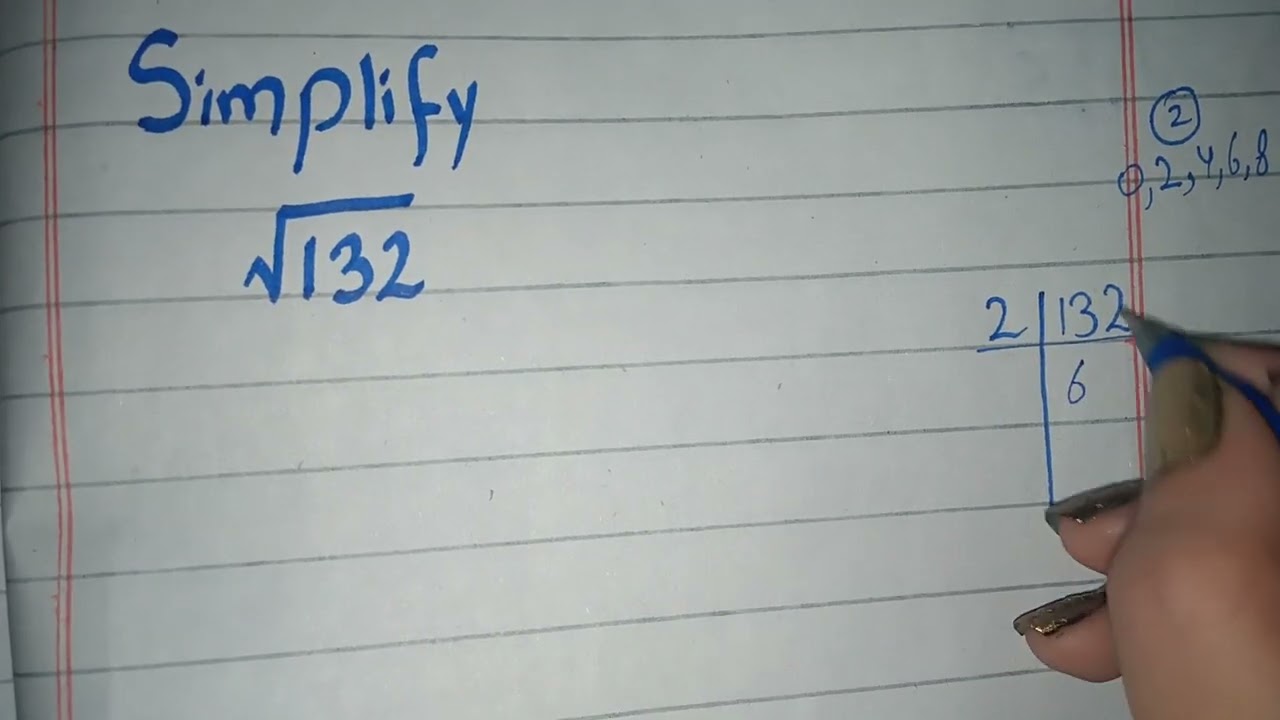 Simplify
√132
②
0,2,4,6,8
2 | 132
6